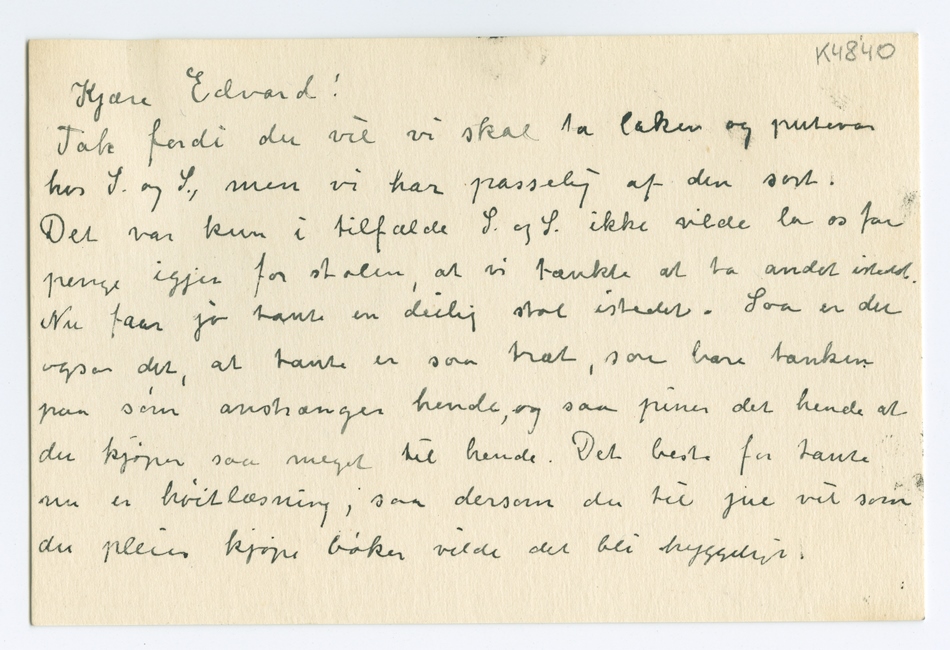 K4840
Kjære Edvard!
Tak fordi du vil vi skal ta laken og putevar
hos S. og S., men vi har passelig af den sort.
Det var kun i tilfælde S. og S. ikke vilde la os faa
penge igjen for stolen, at vi tænkte at ta andet istedet.
Nu faar jo tante en deilig stol istedet. Saa er det
ogsaa det, at tante er saa træt, saa bare tanken
paa søm anstrænger hende, og saa piner det hende at
du kjøper saa meget til hende. Det beste for tante
nu er høitlæsning; saa dersom du til jul vil som
du pleier kjøpe bøker vilde det bli hyggeligt.